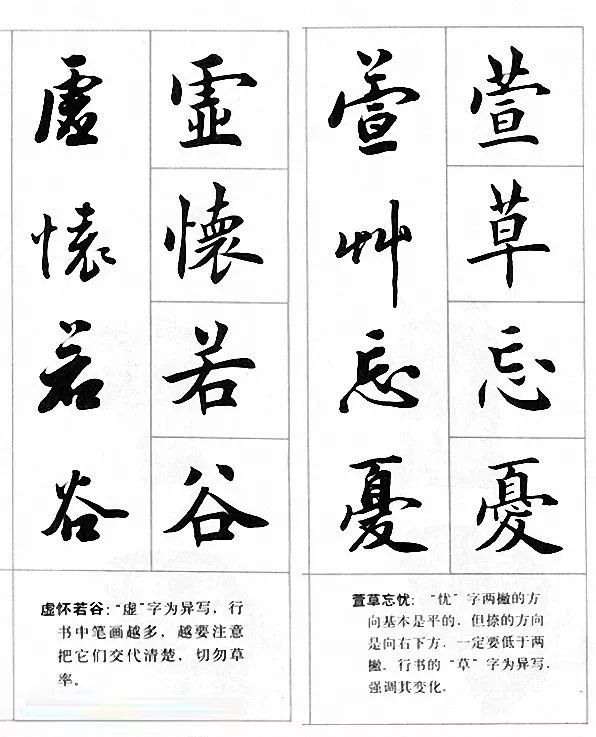 虛懷若谷
虛懷若谷
虚怀若谷:“虚”字为异写,行
书中笔画越多,越要注意
把它们交代清楚,切勿草
率。
萱艸忘憂
萱草忘憂
萱草忘忧:“忧”字两撇的方
向基本是平的,但捺的方向
是向右下方,一定要低于两
撇。行书的“草”字为异写,
强调其变化。